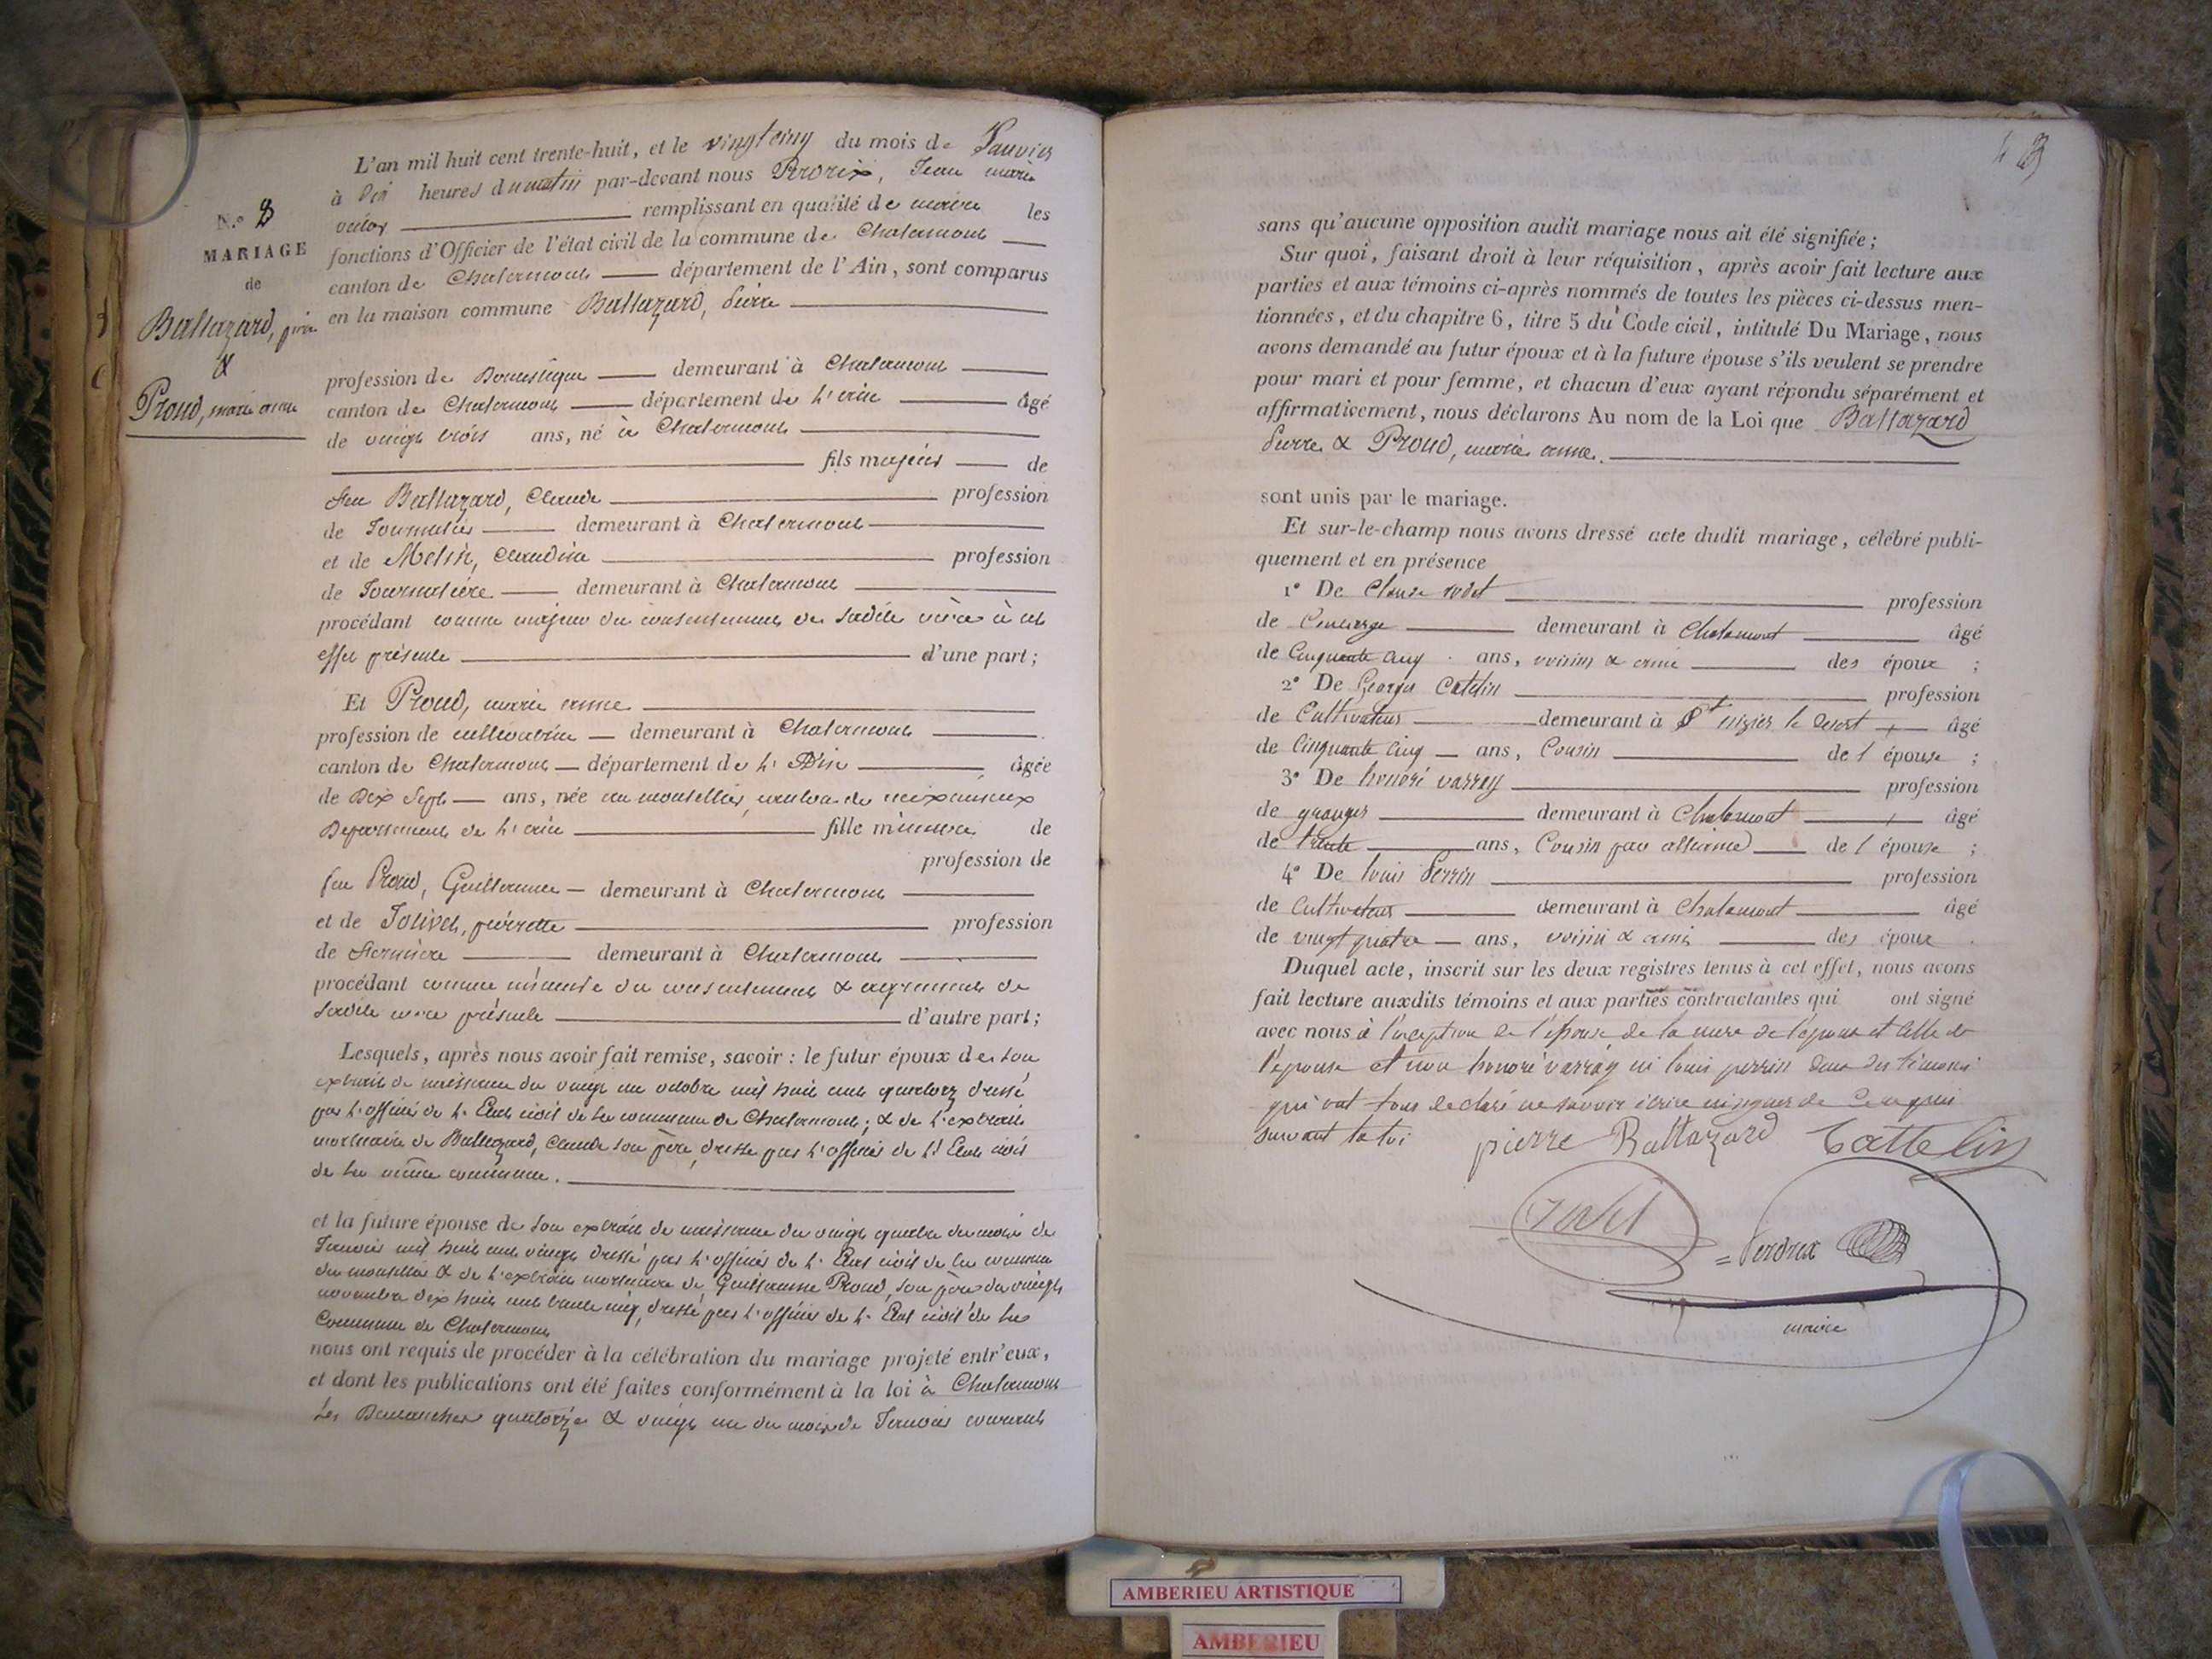 L'an mil huit cent trente-huit, et le vingt cinq du mois de Janvier
à Dix heures du matin par-devant nous Jean marie
victor remplissant en qualité de maire les
N.º 8
MARIAGE
de
Baltazard, pierre
&
Proud, marie anne
fonctions d'Officier de l'état civil de la commune de Chalamont
canton de Chalamont département de l'Ain, sont comparus
en la maison commune Baltazard, Pierre
profession de Domestique demeurant à Chalamont
canton de Chalamont département de l'ain âgé
de vingt trois ans, né à Chalamont
fils majeur de
feu Baltazard, Claude profession
de Journalier demeurant à Chalamont
et de Claudine profession
de Journalière demeurant à Chalamont
procédant comme majeur du consentement de sadite mère à cet
effet présente d'une part;
Et Proud, marie anne
profession de cultivatrice demeurant à Chalamont
canton de Chalamont département de l'Ain âgée
de Dix Sept ans, née au montellier, canton de meximieux
Département de l'ain fille mineure de
profession de
feu Proud, Guillaume demeurant à Chalamont
et de Jolivet, pierrette profession
de fermière demeurant à Chalamont
procédant comme mineure du consentement & agrément de
sadite mère présente d'autre part;
Lesquels, après nous avoir fait remise, savoir: le futur époux de son
extrait de naissance du vingt un octobre mil huit cent quatorze dressé
par l'officier de l'Etat civil de la commune de Chalamont; & de l'extrait
mortuaire de Baltazard, Claude son père, dressé par l'officier de l'Etat civil
de la même commune.
et la future épouse de son extrait de naissance du vingt quatre du mois de
Janvier mil huit cent vingt dressé par l'officier de l'Etat civil de la commune
du montellier & de l'extrait mortuaire de Guillaume Proud, son père du vingt
novembre dix huit cent trente dressé par l'officier de l'Etat civil de la
Commune de Chalamont
nous ont requis de procéder à la célébration du mariage projeté entr'eux,
et dont les publications ont été faites conformément à la loi à Chalamont
les Dimanches quatorze & vingt un du mois de Janvier courant
sans qu'aucune opposition audit mariage nous ait été signifiée;
Sur quoi, faisant droit à leur réquisition, après avoir fait lecture aux
parties et aux témoins ci-après nommés de toutes les pièces ci-dessus men-
tionnées, et du chapitre 6, titre 5 du Code civil, intitulé Du Mariage, nous
avons demandé au futur époux et à la future épouse s'ils veulent se prendre
pour mari et pour femme, et chacun d'eux ayant répondu séparément et
affirmativement, nous déclarons Au nom de la Loi que Baltazard
Pierre & Proud, marie anne.
sont unis par le mariage.
Et sur-le-champ nous avons dressé acte dudit mariage, célébré publi-
quement et en présence
1º De Claude rodet profession
de Concierge demeurant à Chalamont âgé
de Cinquante cinq ans, voisin & ami des époux;
2º De Georges Catelin profession
de Cultivateur demeurant à St nizier le desert âgé
de Cinquante cinq ans, Cousin de l'épouse;
3º De honoré varray profession
de granger demeurant à Chalamont âgé
de trente ans, Cousin par alliance de l'épouse;
4º De louis Perrin profession
de Cultivateur demeurant à Chalamont âgé
de vingt quatre ans, voisin & ami des époux.
Duquel acte, inscrit sur les deux registres tenus à cet effet, nous avons
fait lecture auxdits témoins et aux parties contractantes qui ont signé
avec nous à l'exception de l'épouse de la mere de l'epoux et celle de
l'epouse et non honoré varray ni louis perrin deux des témoins
qui ont tous déclaré ne savoir écrire ni signer de ce requis
suivant la loi pierre Baltazard Cattelin
rodet
Perdrix
maire
AMBERIEU ARTISTIQUE
AMBERIEU